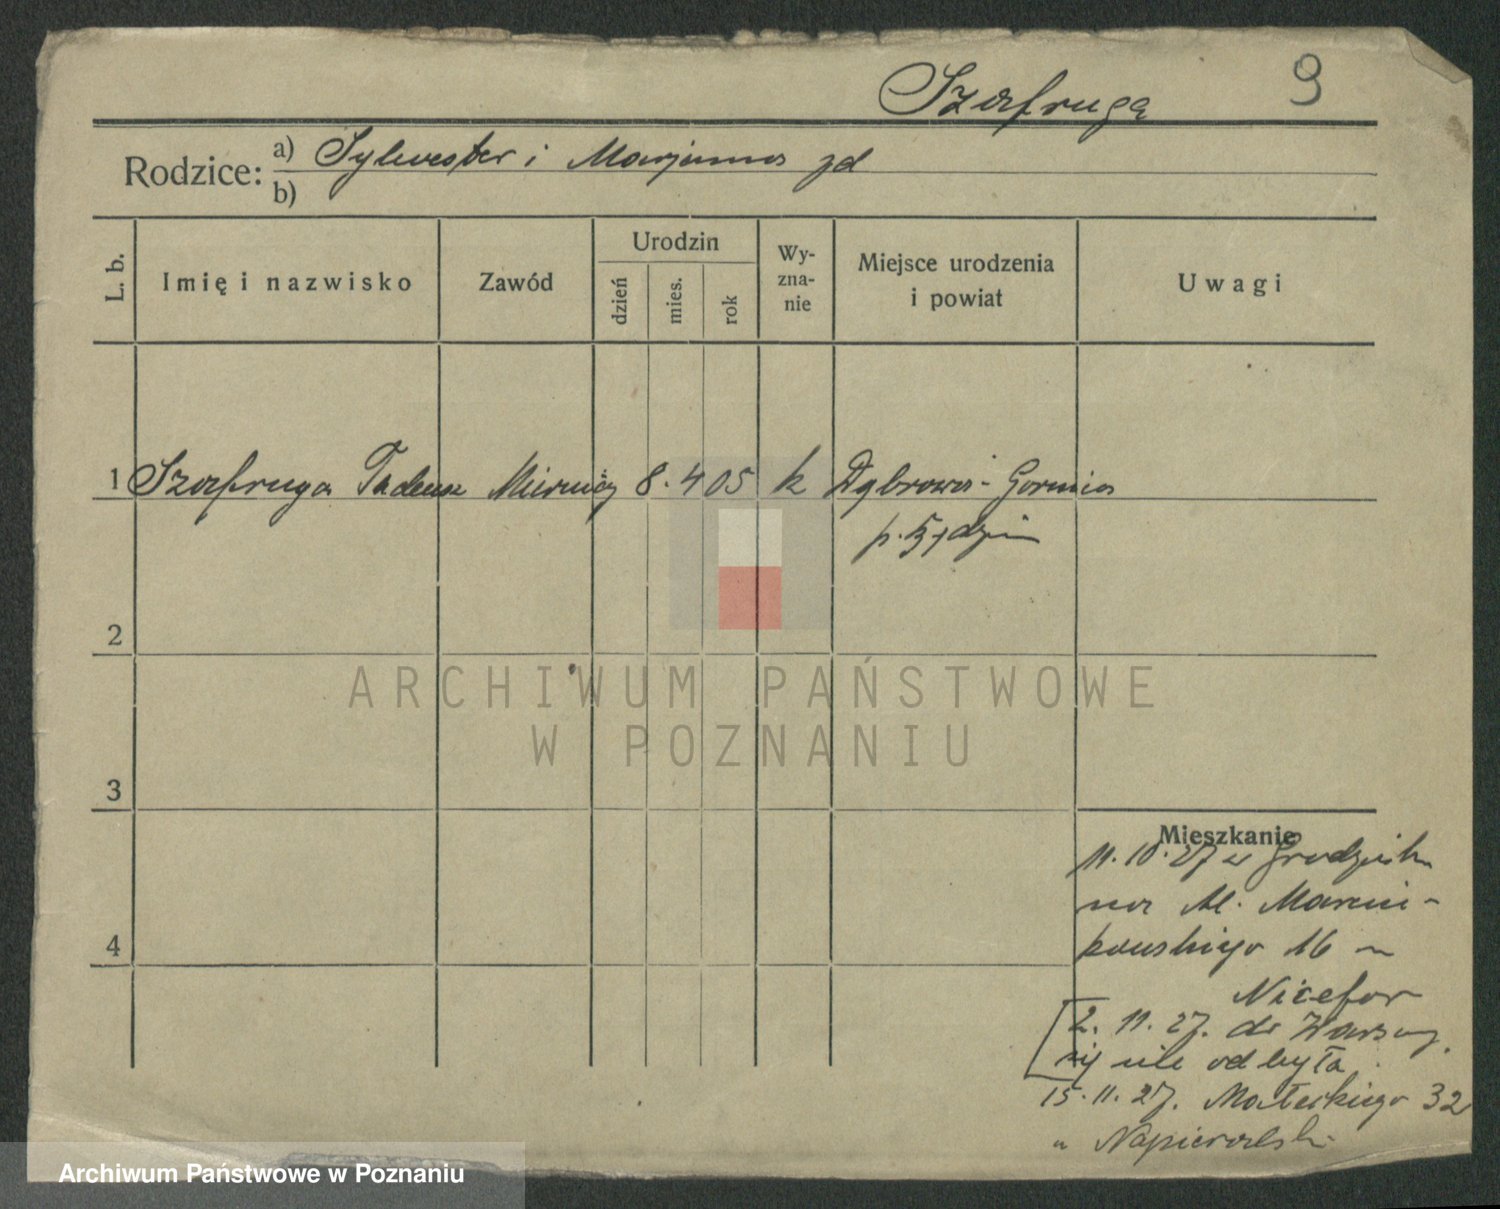 Szafruga 9
Rodzice: a) Sylwester i Marjanna zd
b)
L. b. Imię i nazwisko Zawód Urodzin dzień mies. rok Wy-zna-nie Miejsce urodzenia i powiat Uwagi
1 Szafruga Tadeusz Mierniczy 8. 4 05 k Dąbrowa-Gornica
p. Będzin
2
ARCHIWUM PAŃSTWOWE
W POZNANIU
3
Mieszkanie
11. 10. 27 z Grodziska
na Al. Marcin-
kowskiego 16 u
4
Nicefor
2. 11. 27. do Warszawy
się nie odbyła
15. 11. 27. Małeckiego 32
u Napieralski
Archiwum Państwowe w Poznaniu